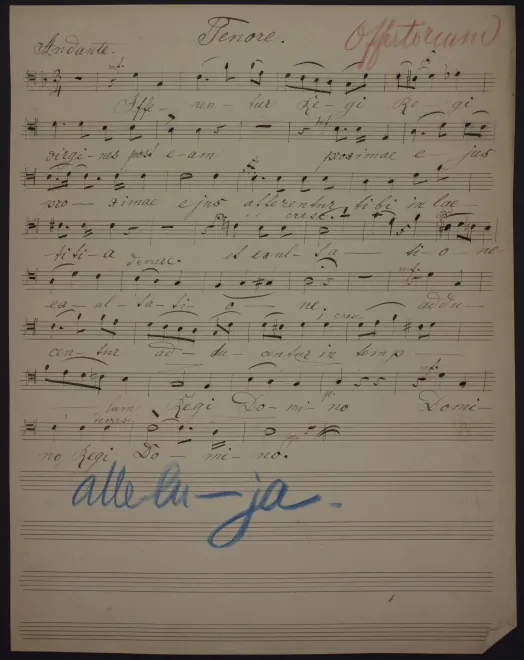 Tenore.
Offertorium
Andante.
mf.
Affe - ren - tur Re - gi Re - gi
mf
virgi - nes post e - am proximae e - jus
pro - ximae ejus afferentur tibi in lae -
cresc.
titi - a et exul - ta - ti - o - ne
decresc.
mf.
ex - ul - ta - ti - o - ne. addu -
cresc.
cen - tur ad - du - centur in temp -
mf.
lum Regi Do - mi - no Domi -
decresc.
no, Regi Do - mi - no.
alle - lu - ja.